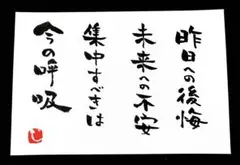 昨日への後悔
未来への不安
集中すべきは
今の呼吸